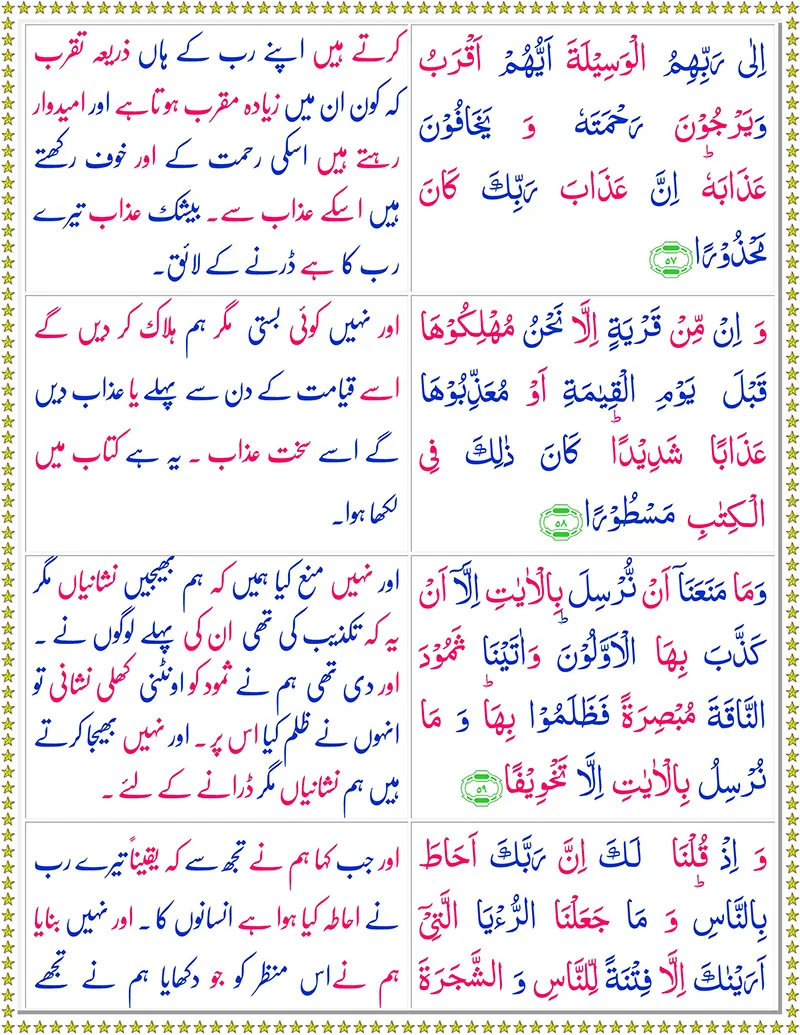 اِلٰى رَبِّهِمُ الْوَسِيْلَةَ اَيُّهُمْ اَقْرَبُ
وَيَرْجُوْنَ رَحْمَتَهٗ وَ يَخَافُوْنَ
عَذَابَهٗ ؕ اِنَّ عَذَابَ رَبِّكَ كَانَ
مَحْذُوْرًا ۵۷
کرتے ہیں اپنے رب کے ہاں ذریعہ تقرب
کہ کون ان میں زیادہ مقرب ہوتاہے اور امیدوار
رہتے ہیں اسکی رحمت کے اور خوف رکھتے
ہیں اسکے عذاب سے۔ بیشک عذاب تیرے
رب کا ہے ڈرنے کے لائق۔
وَ اِنْ مِّنْ قَرْيَةٍ اِلَّا نَحْنُ مُهْلِكُوْهَا
قَبْلَ يَوْمِ الْقِيٰمَةِ اَوْ مُعَذِّبُوْهَا
عَذَابًا شَدِيْدًا ؕ كَانَ ذٰلِكَ فِى
الْكِتٰبِ مَسْطُوْرًا ۵۸
اور نہیں کوئی بستی مگر ہم ہلاک کر دیں گے
اسے قیامت کے دن سے پہلے یا عذاب دیں
گے اسے سخت عذاب ۔ یہ ہے کتاب میں
لکھا ہوا۔
وَمَا مَنَعَنَاۤ اَنْ نُّرْسِلَ بِالْاٰيٰتِ اِلَّاۤ اَنْ
كَذَّبَ بِهَا الْاَوَّلُوْنَ ؕ وَاٰتَيْنَا ثَمُوْدَ
النَّاقَةَ مُبْصِرَةً فَظَلَمُوْا بِهَا ؕ وَ مَا
نُرْسِلُ بِالْاٰيٰتِ اِلَّا تَخْوِيْفًا ۵۹
اور نہیں منع کیا ہمیں کہ ہم بھیجیں نشانیاں مگر
یہ کہ تکذیب کی تھی ان کی پہلے لوگوں نے ۔
اور دی تھی ہم نے ثمود کو اونٹنی کھلی نشانی تو
انہوں نے ظلم کیا اس پر۔ اور نہیں بھیجا کرتے
ہیں ہم نشانیاں مگر ڈرانے کے لئے ۔
وَ اِذْ قُلْنَا لَـكَ اِنَّ رَبَّكَ اَحَاطَ
بِالنَّاسِ ؕ وَ مَا جَعَلْنَا الرُّءْيَا الَّتِىْۤ
اَرَيْنٰكَ اِلَّا فِتْنَةً لِّلنَّاسِ وَ الشَّجَرَةَ
اور جب کہا ہم نے تجھ سے کہ یقیناً تیرے رب
نے احاطہ کیا ہوا ہے انسانوں کا۔ اور نہیں بنایا
ہم نے اس منظر کو جو دکھایا ہم نے تجھے